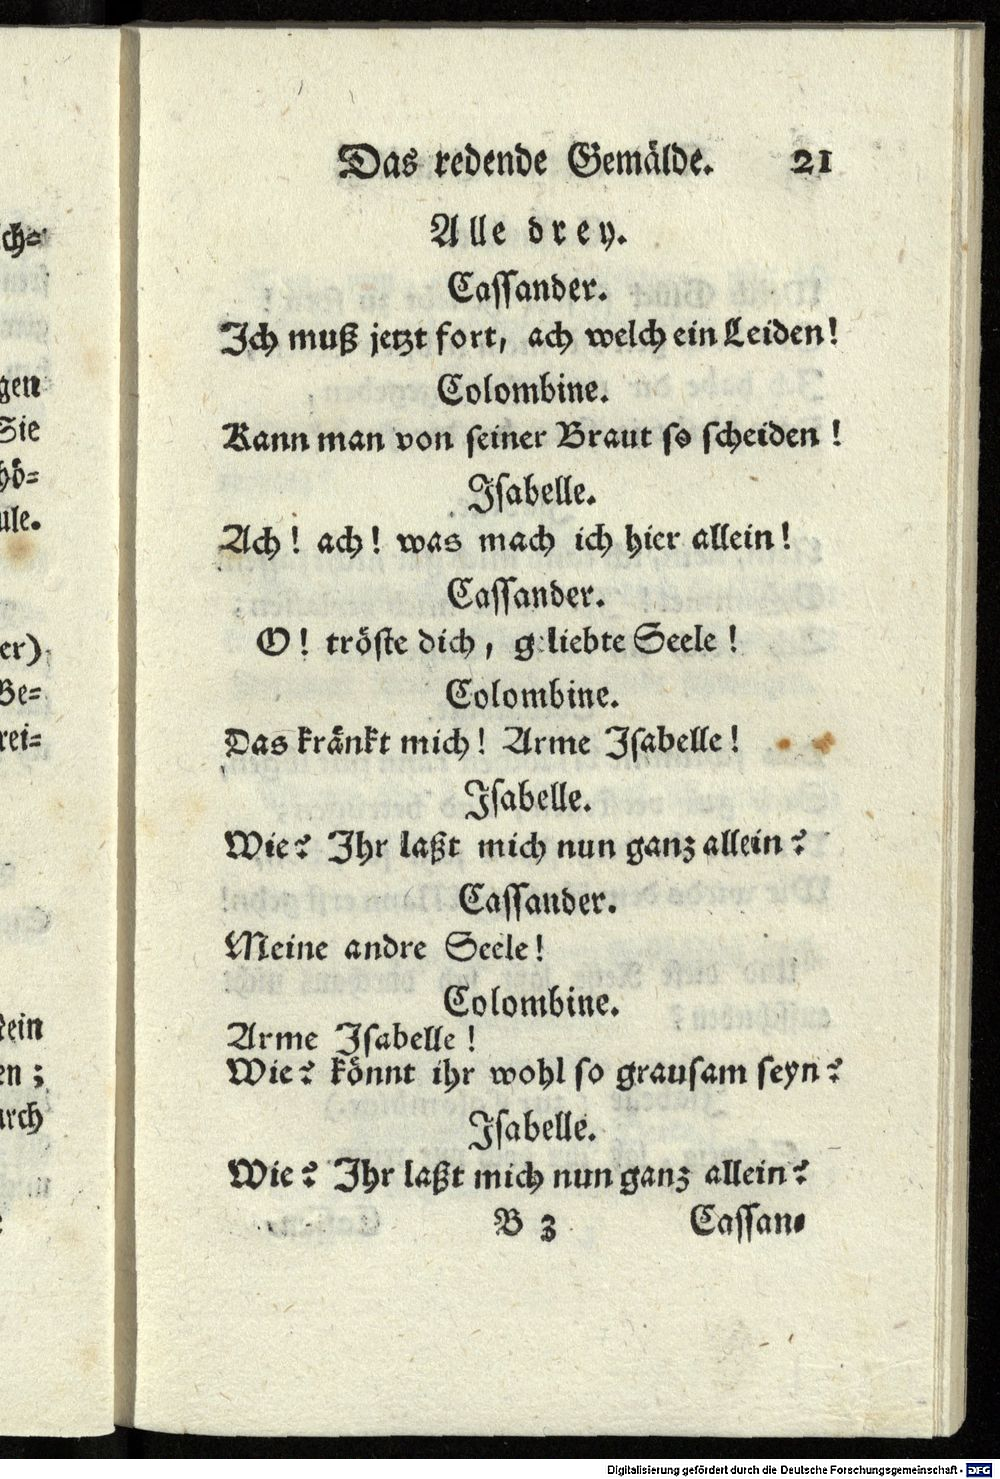 Das redende Gemälde. 21
Alle drey.
Cassander.
Ich muß jetzt fort, ach welch ein Leiden!
Colombine.
Kann man von seiner Braut so scheiden!
Isabelle.
Ach! ach! was mach ich hier allein!
Cassander.
O! tröste dich, g liebte Seele!
Colombine.
Das kränkt mich! Arme Isabelle!
Isabelle.
Wie? Ihr laßt mich nun ganz allein?
Cassander.
Meine andre Seele!
Colombine.
Arme Isabelle!
Wie? könnt ihr wohl so grausam seyn?
Isabelle.
Wie? Ihr laßt mich nun ganz allein?
B 3 Cassan-
ch-
gen
Sie
hö-
ule.
er)
Be-
rei-
en;
urch
Digitalisierung gefördert durch die Deutsche Forschungsgemeinschaft - DFG